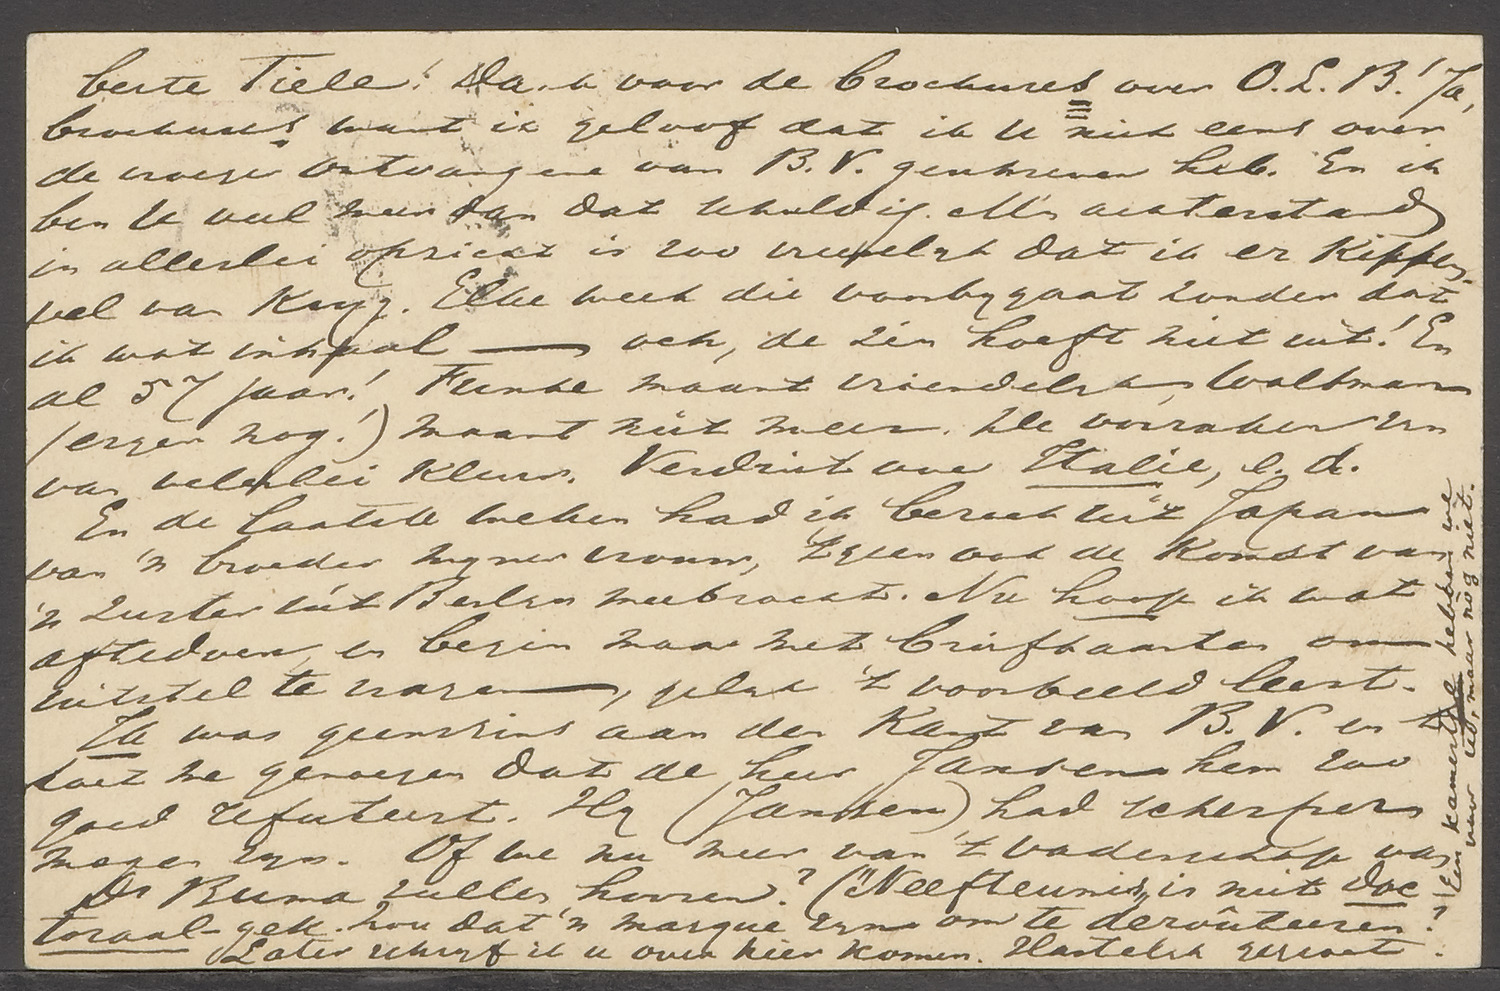 beste Tiele! Dank voor de brochures over O.L.B.! Ja,
brochures want ik geloof dat ik U niet eens over
de vroeger ontvangene van B.V. geschreven heb. En ik
ben U veel meer dan dat schuldig. M'n achterstand
in allerlei opzicht is zoo vreeselyk dat ik er kippen-
vel van kryg. Elke week die voorbygaat zonder dat
ik wat inhaal — och, de zin hoeft niet uit! En
al 57 jaar! Funke maant vriendelyk, Waltman
(erger nog!) maant niet meer. De oorzaken zyn
van velerlei kleur. Verdriet over Italie, e. d.
En de laatste weken had ik bezoek uit Japan
van 'n broeder myner vrouw, 'tgeen ook de komst van
'n zuster uit Berlyn meebracht. Nu hoop ik wat
aftedoen, en begin maar met briefkaarten om
uitstel te vragen —, gelyk 't voorbeeld leert.
Ik was geenszins aan den kant van B.V. en 't
doet me genoegen dat de heer Jansen hem zoo
goed refuteert. Hy (Jansen) had scherper
mogen zyn. Of we nu meer van 't vaderschap van
Dr Buma zullen hooren? ("Neefteunis" is niet doc
toraal-gek. Zou dat 'n masque zyn om te derôuteeren?
Later schryf ik u over hier komen. Hartelyk gegroet.
Een kamertje hebben we
voor U, maar nog niet.